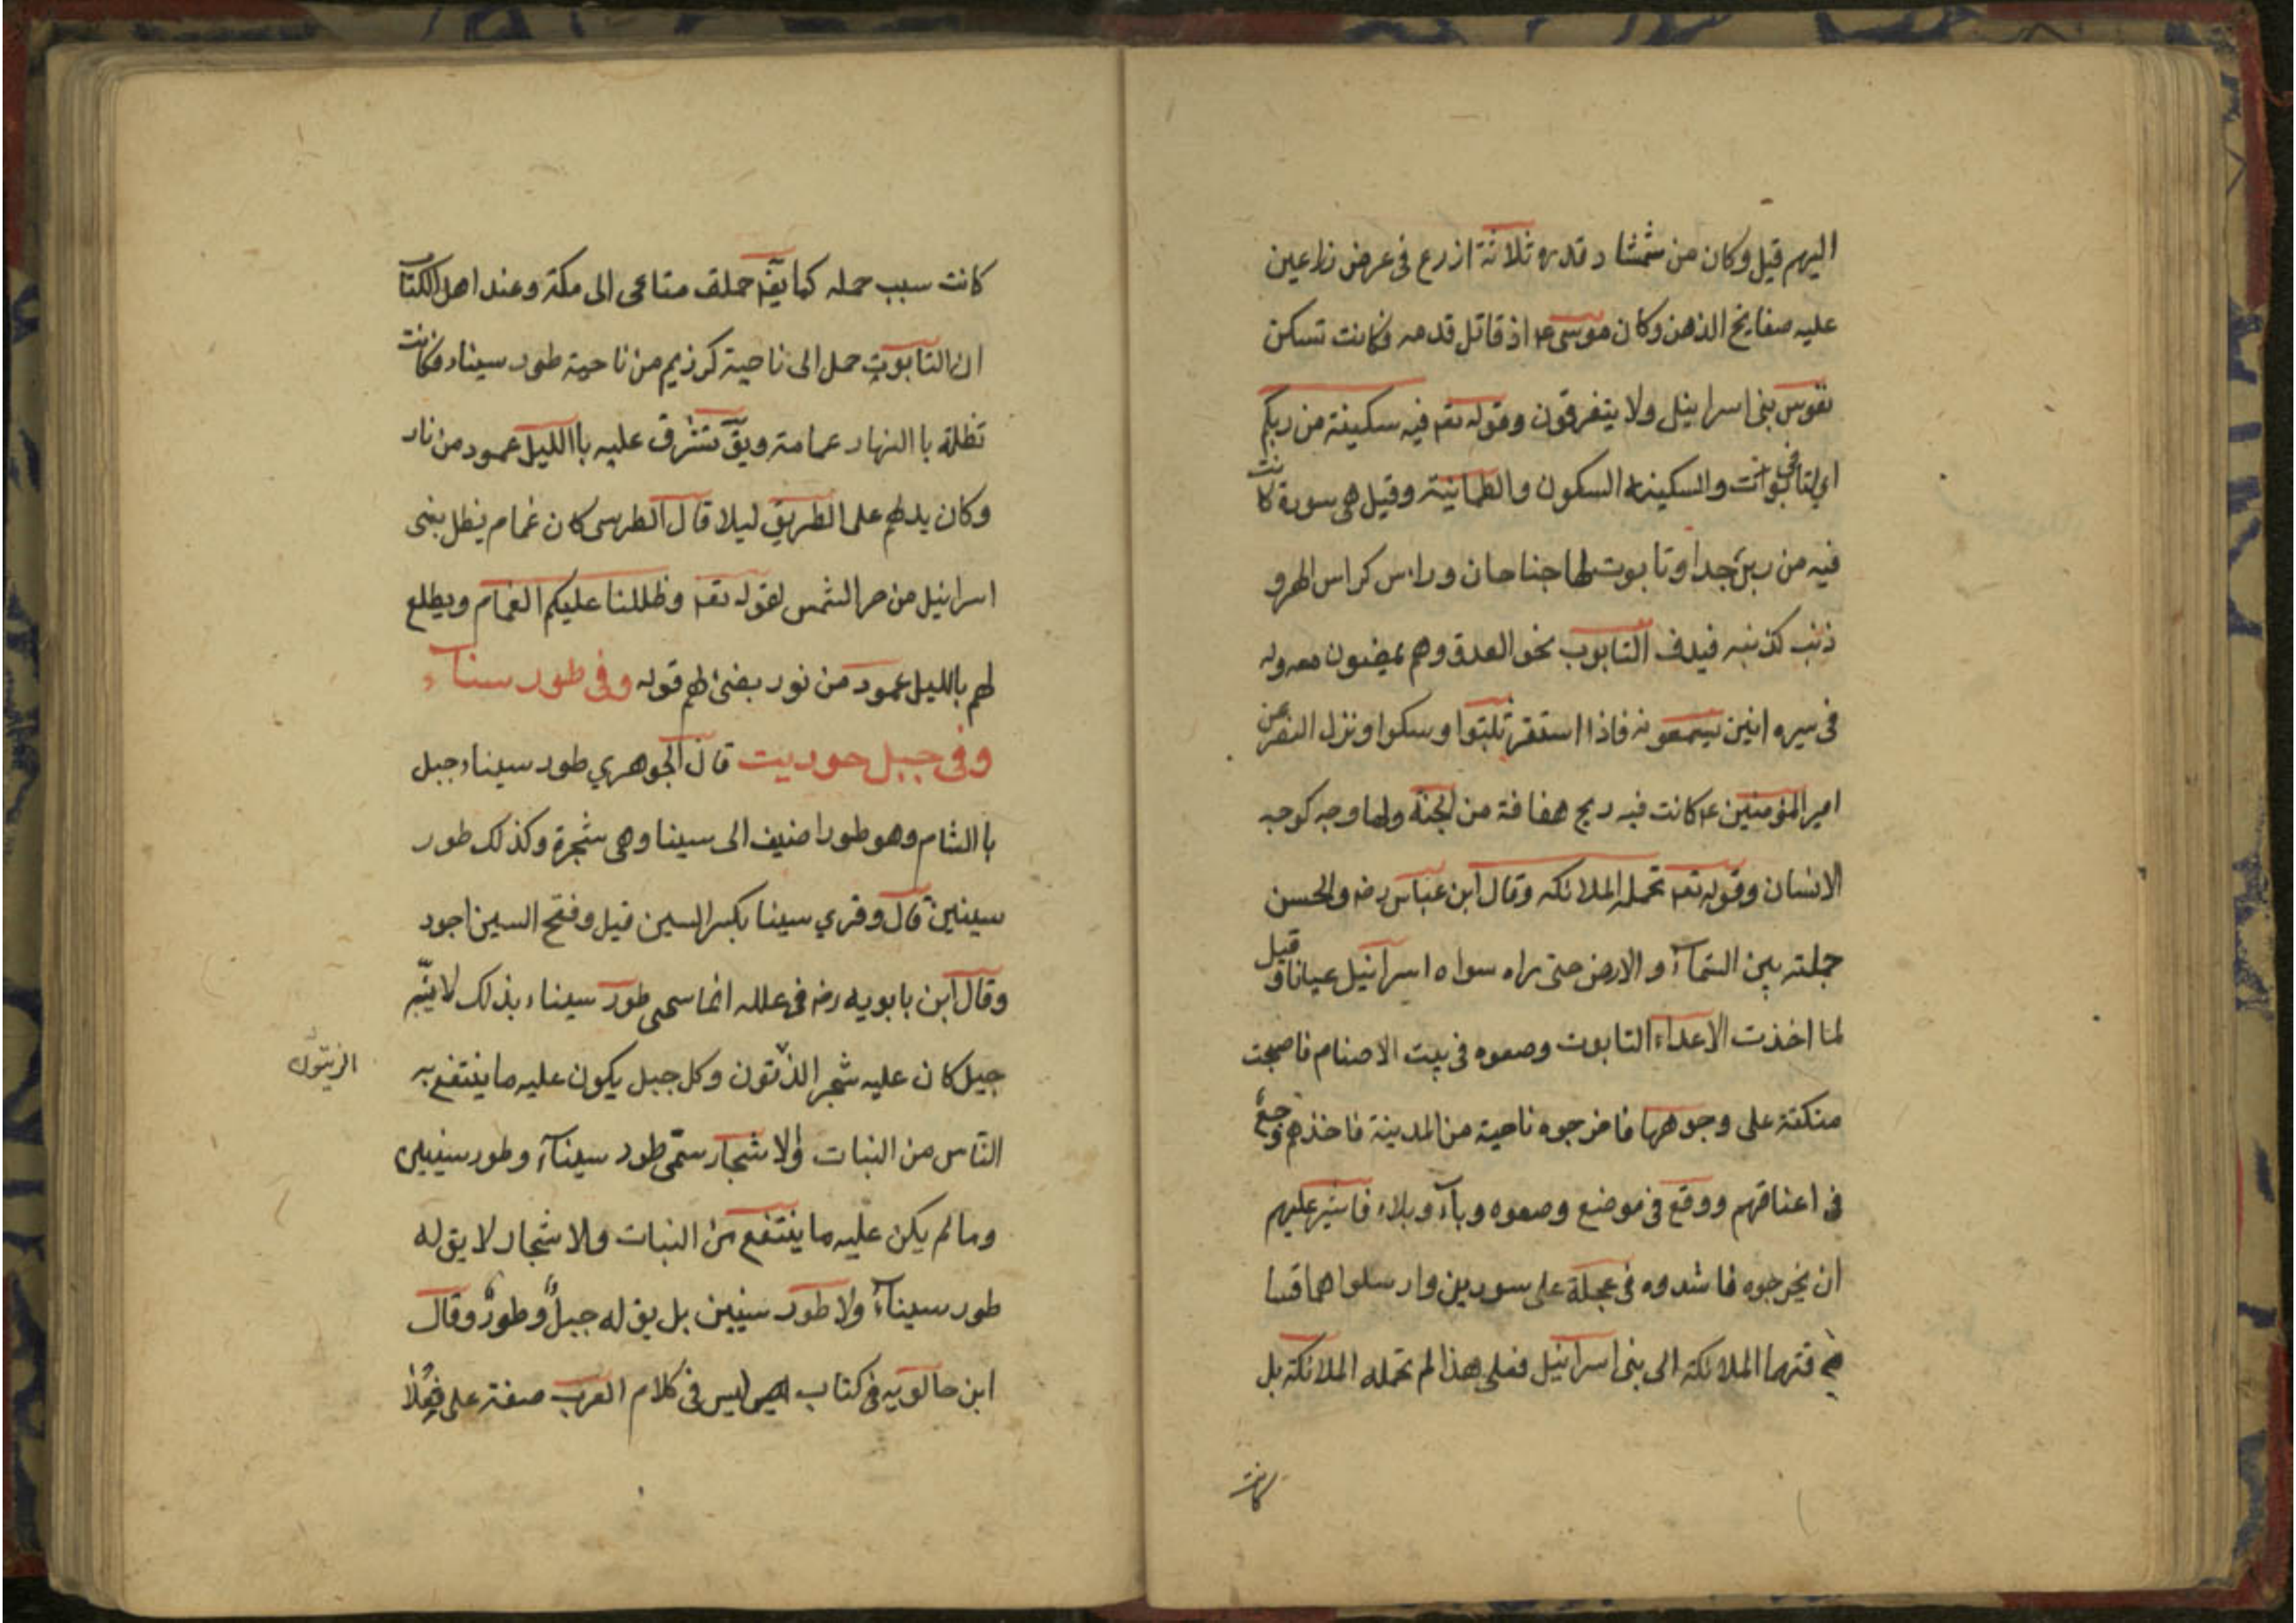 اليهم قيل وكان من شمشاد قدره ثلاثة ازرع فى عرض زراعين
عليه صفايح الذهن وكان موسى ع اذ قاتل قدمه فكانت تسكن
نفوس بنى اسرائيل ولا يتفرقون وقوله تعم فيه سكينة من ربكم
والسكينه السكون والطمانينة وقيل هى سورة كانت
فيه من جدا وتابوت لها جناحان وراس كراس الهر و
ذنب كذنبه فيدف التابوب نحو العدو وهم يمضون معه وله
فى سيره انين يسمعونه فاذا استقر ثبتوا وسكوا ونزل النصر عن
امير المؤمنين ع كانت فيه ريح هفافة من الجنة ولها وجه كوجه
الانسان وقوله تعم تحمله الملائكه وقال ابن عباس رضه والحسن
حملته بين السمآء والارض حتى راه سواه اسرائيل عيانا وقيل
لما اخذت الاعداء التابوت وصعوه فى بيت الاصنام فاصبحت
منكتة على وجوهها فاخرجوه ناحية من المدينة فاخذهم وجع
فى اعناقهم ووقع فى موضع وصعوه وبآء وبلاء فاشير عليهم
ان يخرجوه فاشدوه فى عجلة على سورين وارسلوا هما فسا
قتهما الملائكة الى بنى اسرائيل فعلى هذا لم تحمله الملائكة بل
كانت
كانت سبب حمله كما يقم حملت متاعى الى مكة وعند اهل الكتاب
ان التابوت حمل الى ناحية كرزيم من ناحية طور سيناء فكانت
تظلة با النهار عمامة ويق تشرق عليه با الليل عمود من نار
وكان يدلهم على الطريق ليلا قال الطرسى كان غمام يظل بنى
اسرائيل من حر الشمس لقوله تعم وظللنا عليكم الغمام ويطلع
لهم بالليل عمود من نور يضئ لهم قوله وفى طور سنآء
وفى جبل حوريت قال الجوهري طور سيناء جبل
با الشام وهو طور اضيف الى سينا وهى شجرة وكذلك طور
سينين قال وقري سينا بكسر السين قيل وفتح السين اجود
وقال ابن بابويه رضه فى علله انما سمى طور سيناء بذلك لانه
جبل كان عليه شجر الذتون وكل جبل يكون عليه ما ينتفع به
الزيتون
الناس من النبات والاشجار سمى طور سينآء وطور سينين
وما لم يكن عليه ما ينتفع من النبات والاشجار لا يق له
طور سينآء ولا طور سينين بل يق له جبل وطور وقال
ابن حالويه فى كتاب ليس فى كلام العرب صفة على فعلا